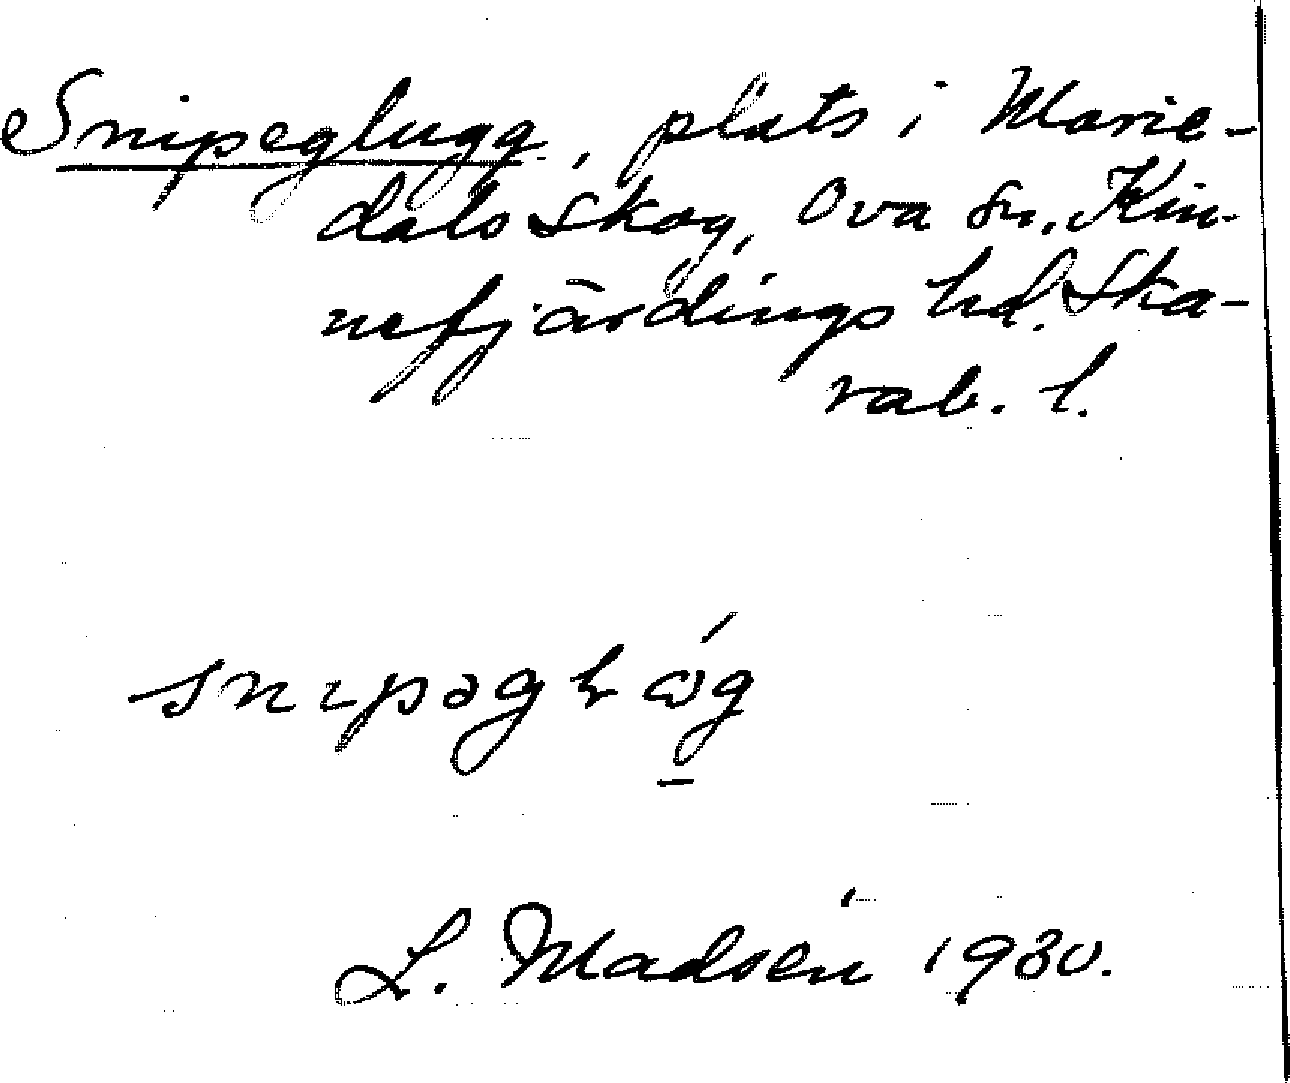 Snipeglugg, plats i Marie-
dals skog, Ova sn, Kin-
nefjärdings hd. Ska-
rab. l.
L. Madsén 1930.